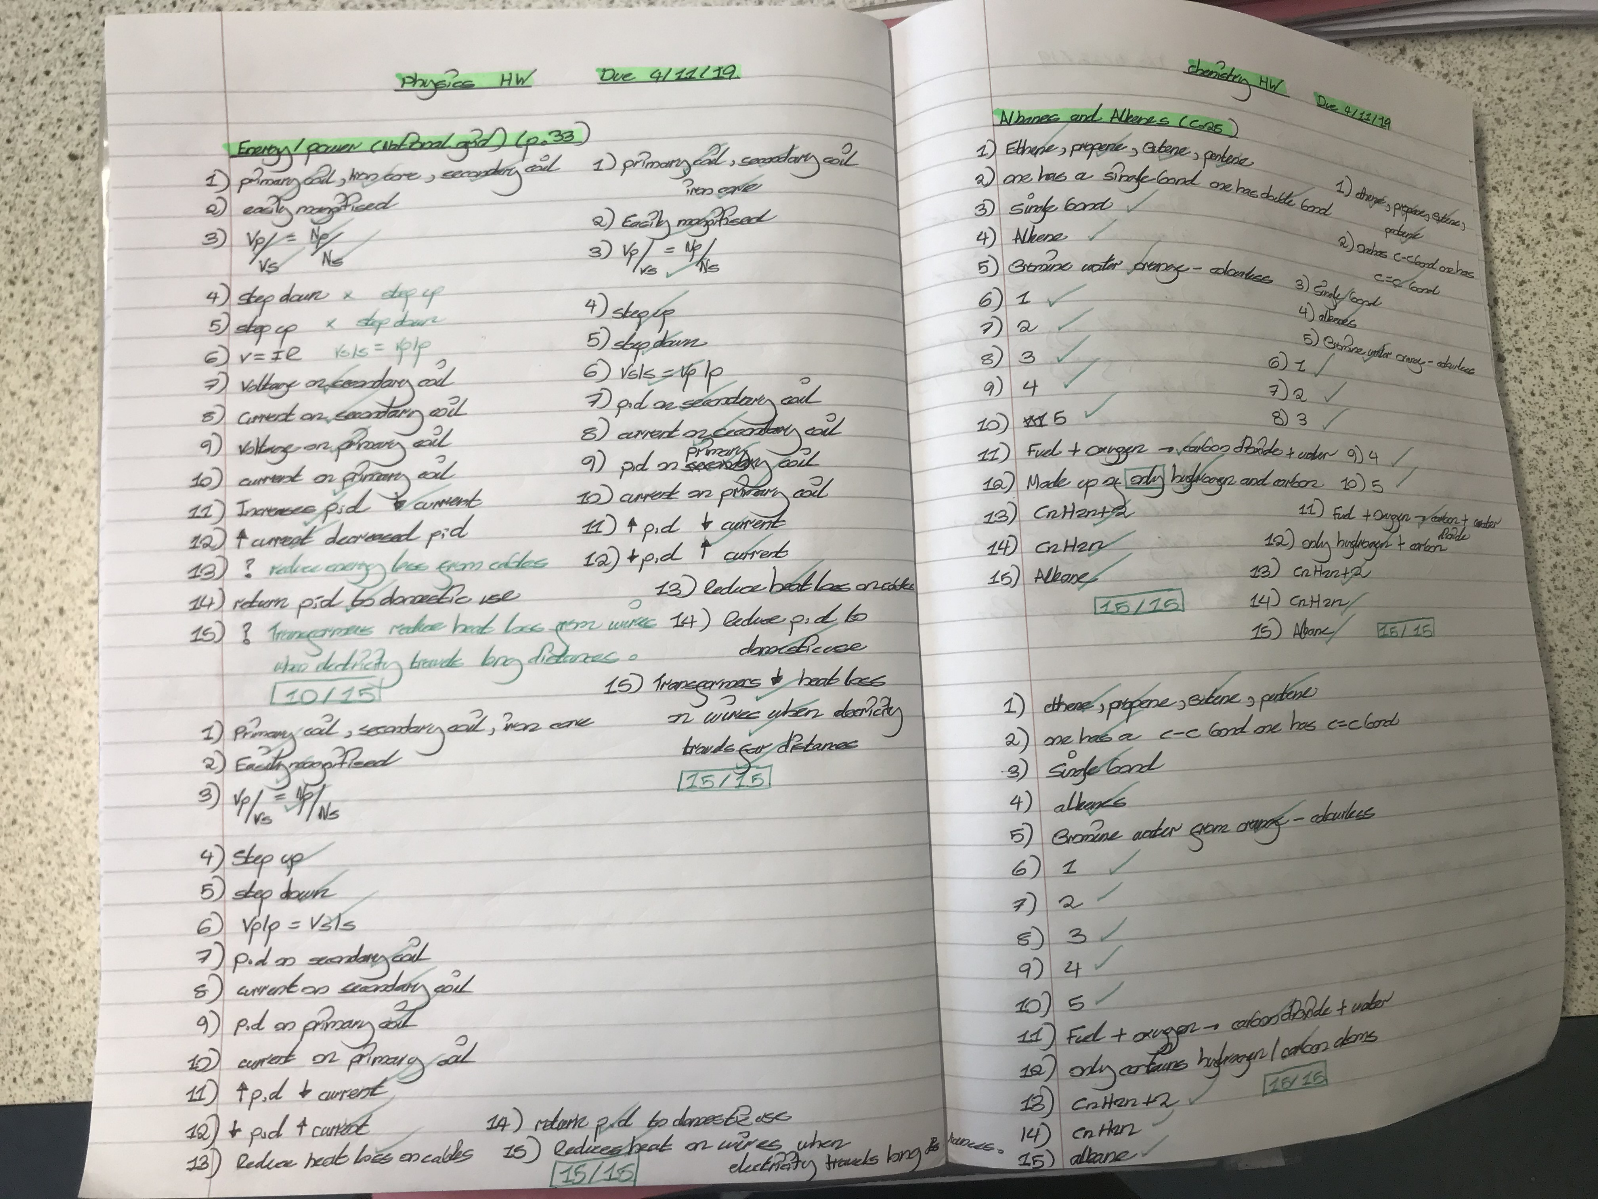 Physics HW Due 4/11/19
Energy/power (National grid) (p.33)
1) primary coil, iron core, secondary coil
2) easily magnetised
3) Vp/Vs = Np/Ns
4) step down x step up
5) step up x step down
6) V=IR VsIs = VpIp
7) Voltage on secondary coil
8) Current on secondary coil
9) Voltage on primary coil
10) current on primary coil
11) Increases p.d ↓ current
12) ↑ current decreased p.d
13) ? reduce energy loss from cables
14) return p.d to domestic use
15) ? Transformers reduce heat loss from wires
when electricity travels long distances.
10/15
1) primary coil, secondary coil
iron core
2) Easily magnetised
3) Vp/Vs = Np/Ns
4) step up
5) step down
6) VsIs = VpIp
7) p.d on secondary coil
8) current on secondary coil
primary
9) p.d on secondary coil
10) current on primary coil
11) ↑ p.d ↓ current
12) ↓ p.d ↑ current
13) Reduce heat loss on cables
14) Reduce p.d to
domestic use
15) Transformers ↓ heat loss
in wires when electricity
travels far distances
15/15
1) Primary coil, secondary coil, iron core
2) Easily magnetised
3) Vp/Vs = Np/Ns
4) Step up
5) step down
6) VpIp = VsIs
7) p.d on secondary coil
8) current on secondary coil
9) p.d on primary coil
10) current on primary coil
11) ↑ p.d ↓ current
12) ↓ p.d ↑ current
13) Reduce heat loss on cables
14) return p.d to domestic use
15) Reduces heat on wires when
electricity travels long distances.
15/15
Chemistry HW
Due 4/11/19
Alkanes and Alkenes (C25)
1) Ethene, propene, butene, pentene
2) one has a single bond one has double bond
3) Single bond
4) Alkene
5) Bromine water orange - colourless
6) 1
7) 2
8) 3
9) 4
10) 5
11) Fuel + oxygen → carbon dioxide + water
12) Made up of only hydrogen and carbon
13) CnH2n+2
14) CnH2n
15) Alkane
15/15
1) ethene, propene, butene,
pentene
2) one has c-c bond one has
c=c bond
3) Single bond
4) alkenes
5) Bromine water orange - colourless
6) 1
7) 2
8) 3
9) 4
10) 5
11) Fuel + oxygen → carbon + water
dioxide
12) only hydrogen + carbon
13) CnH2n+2
14) CnH2n
15) Alkane
15/15
1) ethene, propene, butene, pentene
2) one has a c-c bond one has c=c bond
3) Single bond
4) alkenes
5) Bromine water from orange - colourless
6) 1
7) 2
8) 3
9) 4
10) 5
11) Fuel + oxygen → carbon dioxide + water
12) only contains hydrogen / carbon atoms
15/15
13) CnH2n+2
14) CnH2n
15) alkane